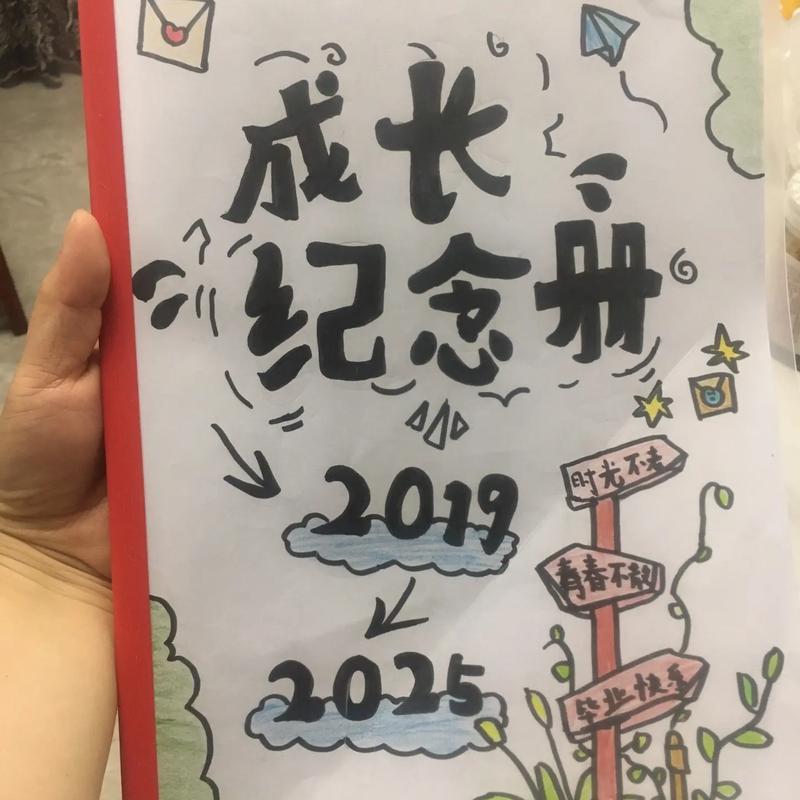 成长
纪念册
2019
2025
时光不老
青春不散
毕业快乐